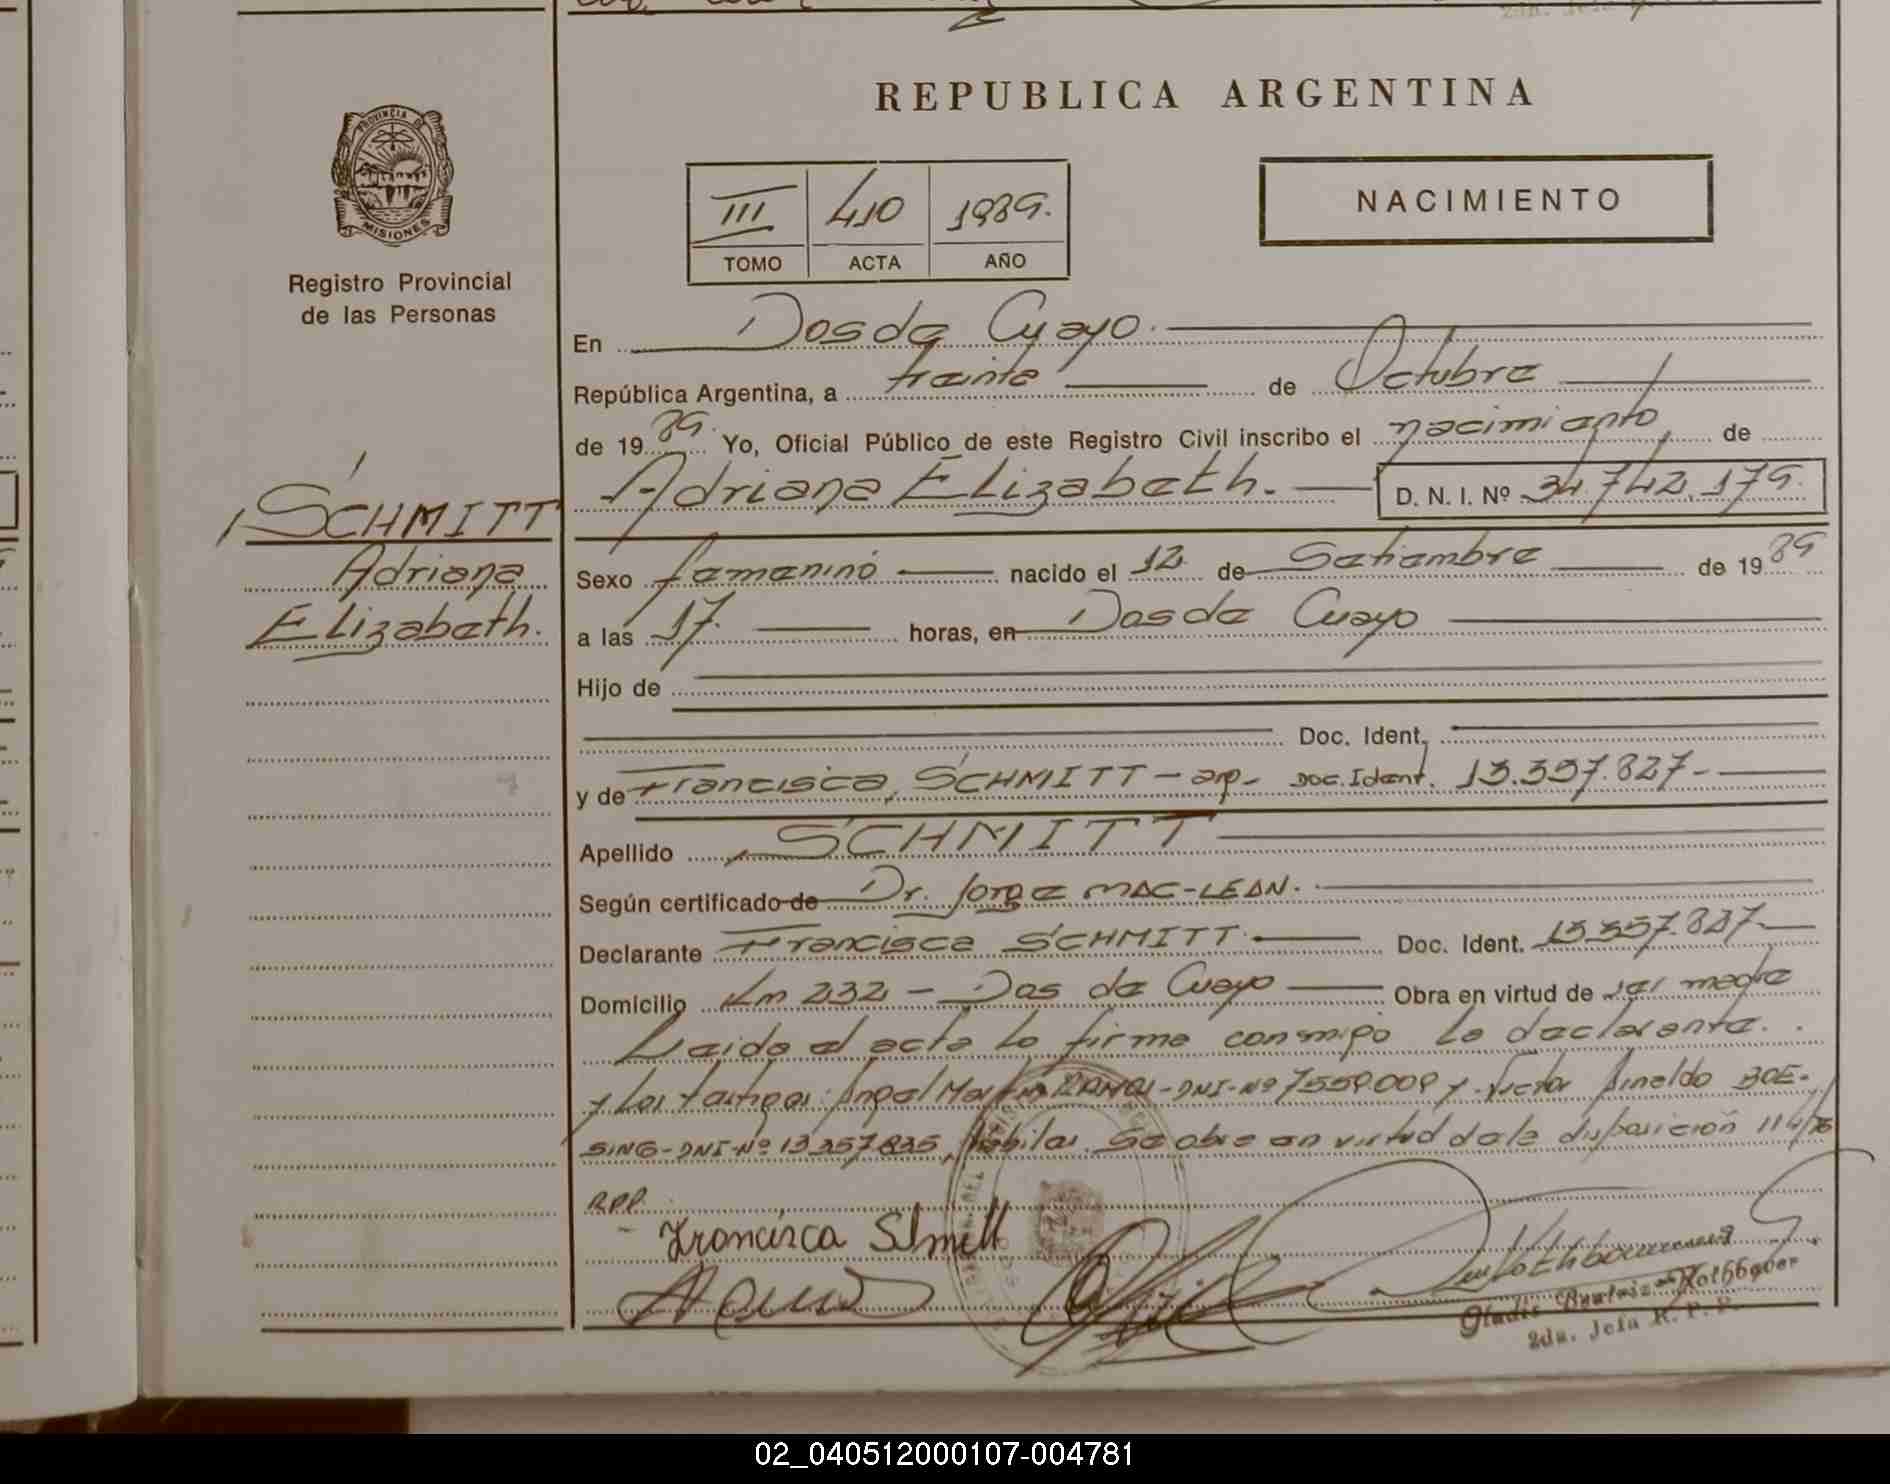 REPUBLICA ARGENTINA
PROVINCIA DE
MISIONES
Registro Provincial
de las Personas
III 410 1989.
TOMO ACTA AÑO
NACIMIENTO
En Dos de Mayo.
República Argentina, a treinta de Octubre
de 1989. Yo, Oficial Público de este Registro Civil inscribo el nacimiento de
Adriana Elizabeth. D. N. I. Nº 34.742.179.
SCHMITT
Adriana
Elizabeth.
Sexo femenino nacido el 12 de Setiembre de 1989
a las 17 horas, en Dos de Mayo
Hijo de
Doc. Ident.
y de Francisca SCHMITT - arg- Doc. Ident. 13.357.827-
Apellido SCHMITT
Según certificado de Dr. Jorge MAC-LEAN.
Declarante Francisca SCHMITT. Doc. Ident. 13.357.827-
Domicilio Km 232 - Dos de Mayo Obra en virtud de ser madre
Leida el acta la firma conmigo la declarante.
y los testigos: Angel Martin -DNI-Nº 7559009 y Victor Arnaldo BOE-
SING-DNI-Nº 13357835, hábiles. Se abre en virtud de la disposición 114/76
R.P.P.
Francisca Schmitt
Gladis Beatriz
2da. Jefa R. P. P.
02_040512000107-004781